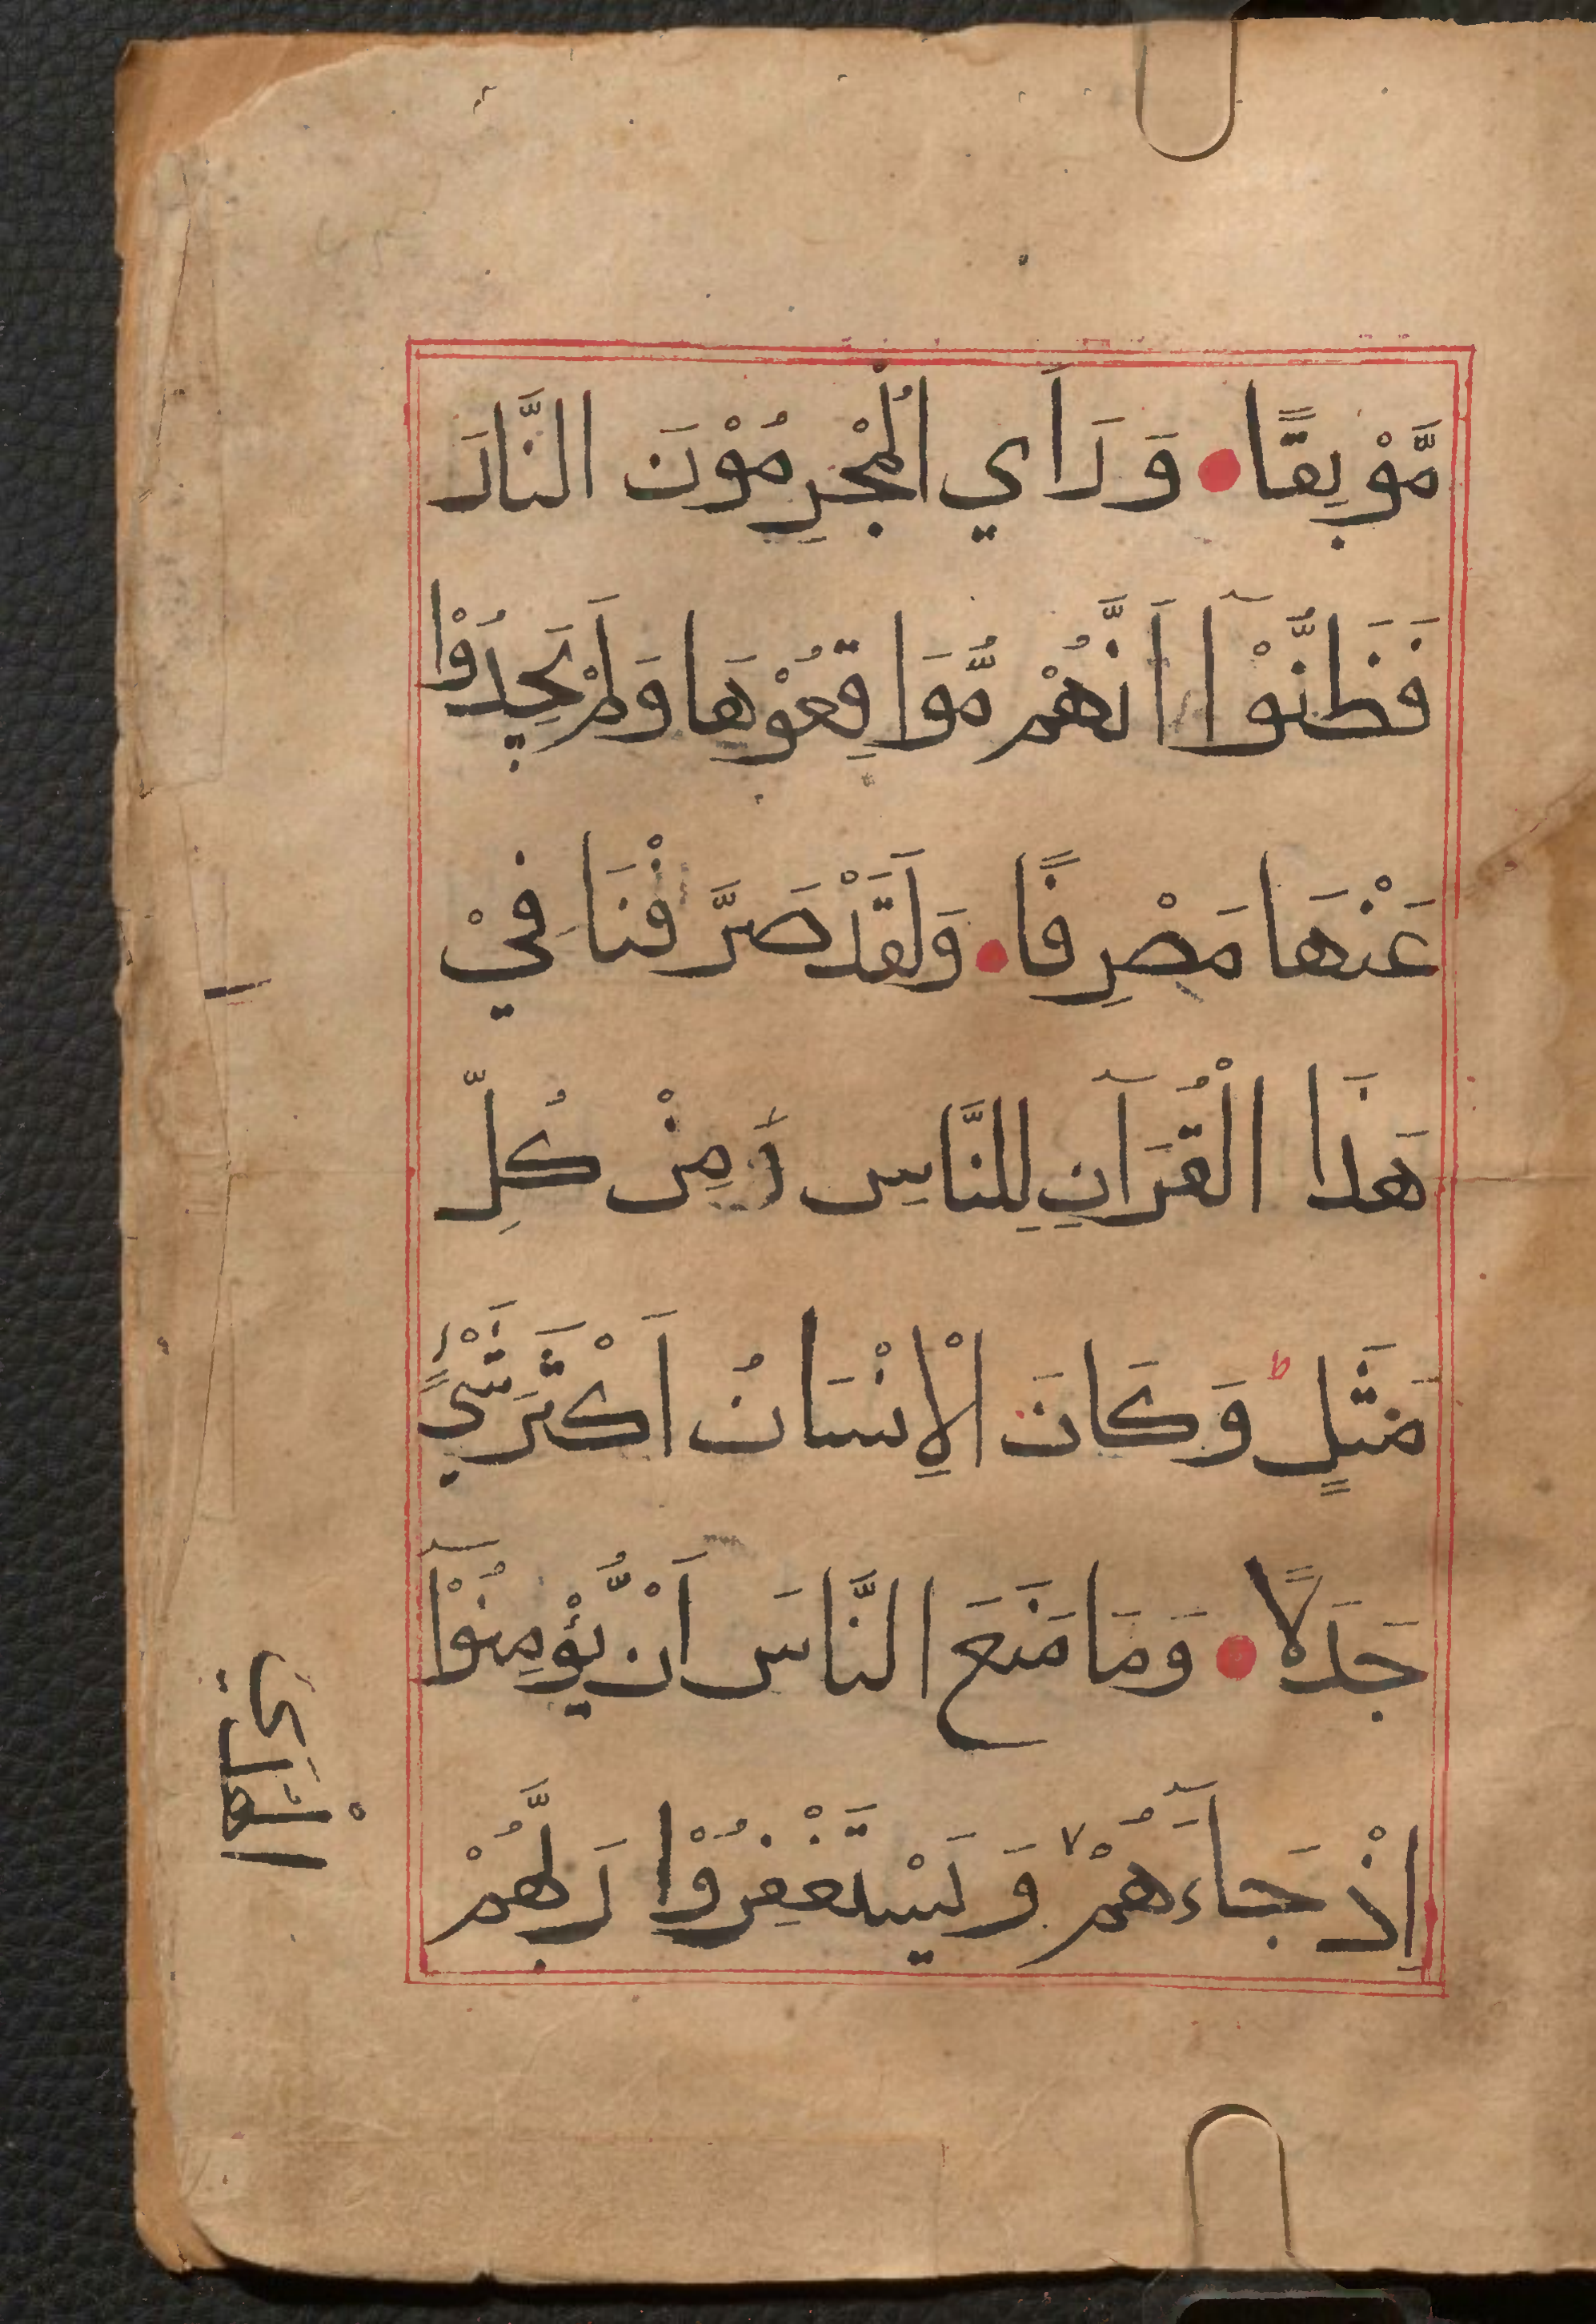 مَّوْبِقًا وَ رَاَي الْمُجْرِمُوْنَ النَّارَ
فَظَنُّوْآ اَنَّهُمْ مُّوَاقِعُوْهَا وَلَمْ يَجِدُوْا
عَنْهَا مَصْرِفًا وَلَقَدْ صَرَّفْنَا فِيْ
هَذَا الْقُرَآنِ لِلنَّاسِ مِنْ كُلِّ
مَثَلٍ ط وَكَانَ الْاِنْسَانُ اَكْثَرَ شَيْءٍ
جَدَلًا وَمَا مَنَعَ النَّاسَ اَنْ يُّؤْمِنُوْآ
اِذْ جَآءَهُمُ وَ يَسْتَغْفِرُوْا رَبَّهُمْ
الْهُدَي